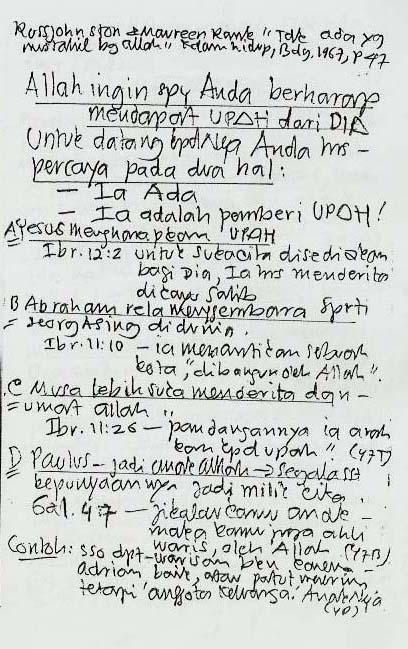 Russjohnston & Maureen Rank "Tdk ada yg
mustahil bg Allah" Kalam hidup, Bdg, 1967, P 47
Allah ingin spy Anda berharap
mendapat UPAH dari DIA
Untuk datang kpdNya Anda hrs -
percaya pada dua hal:
- Ia Ada
- Ia adalah pemberi UPAH!
A Yesus mengharapkan UPAH
Ibr. 12:2 untuk sukacita disediakan
bagi Dia, Ia hrs menderita
dikayu salib
B Abraham rela mengembara sprti
seorg Asing di dunia.
Ibr. 11:10 - ia menantikan sebuah
kota, "dibangun oleh Allah".
C Musa lebih suka menderita dgn -
umat Allah
Ibr. 11:26 - pandangannya ia arah
kan kpd upah" (47T)
D Paulus - jadi anak Allah → segala ss
kepunyaannya jadi milik kita.
Gal. 4:7 - jikalau kamu anak -
maka kamu juga ahli
waris, oleh Allah (47B)
Contoh: sso dpt warisan bkn karena -
baik, atau patut
tetapi anggota keluarga. AnakNya